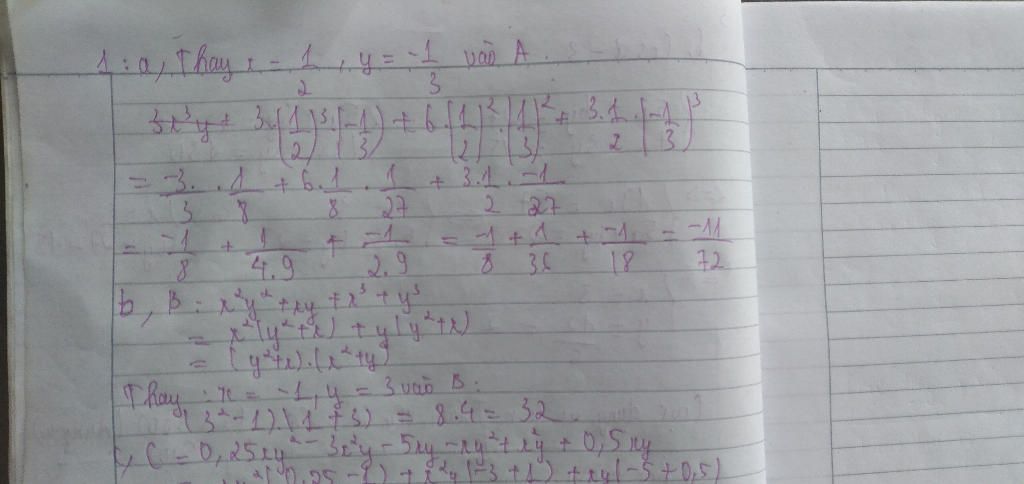 1: a, Thay x = 1/2, y = -1/3 vào A.
3x³y + 3.(1/2)³.(-1/3) + 6.(1/2)².(1/3)² + 3.1/2.(-1/3)³
= -3/3 . 1/8 + 6.1/8 . 1/27 + 3.1/2 . -1/27
= -1/8 + 1/4.9 + -1/2.9 = -1/8 + 1/36 + -1/18 = -11/72
b, B: x²y² + xy + x³ + y³
= x²(y²+x) + y(y²+x)
= (y²+x).(x²+y)
Thay: x = -1, y = 3 vào B:
(3²-1)(1+3) = 8.4 = 32
c, C = 0,25xy² - 3x²y - 5xy - xy² + x²y + 0,5xy
= xy²(0,25-1) + x²y(-3+1) + xy(-5+0,5)